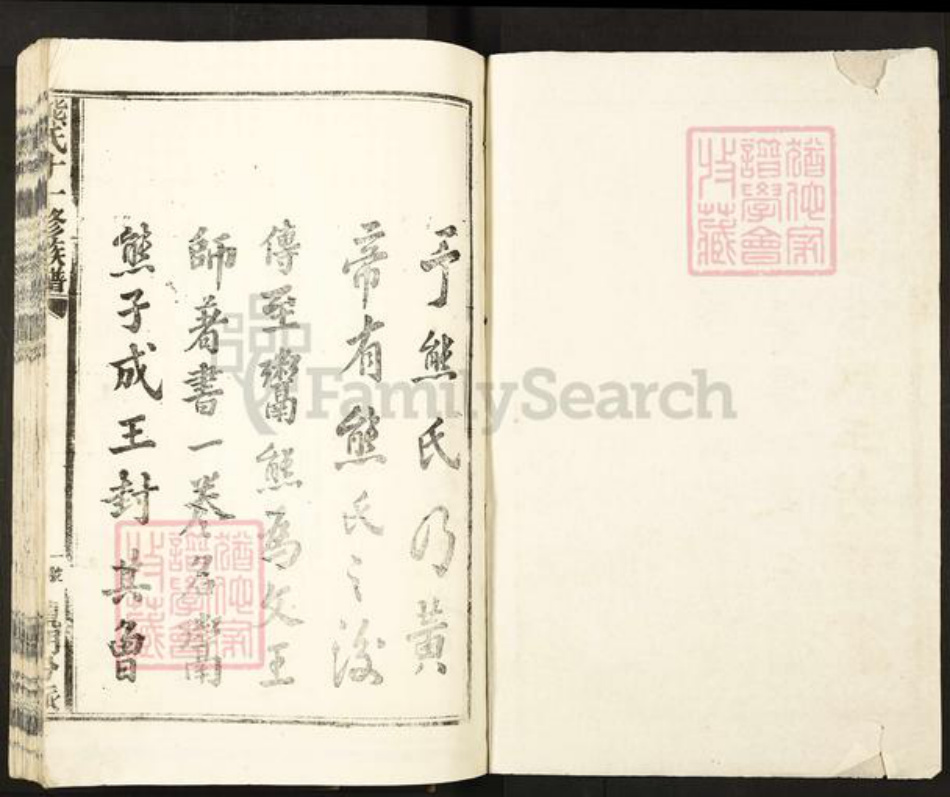 予熊氏乃黃
帝有熊氏之後
傳至鬻熊為文王
師著書一卷名鬻
熊子成王封其曾
熊氏十一修族譜
猶他家
譜學會
收藏
猶他家
譜學會
收藏
FamilySearch